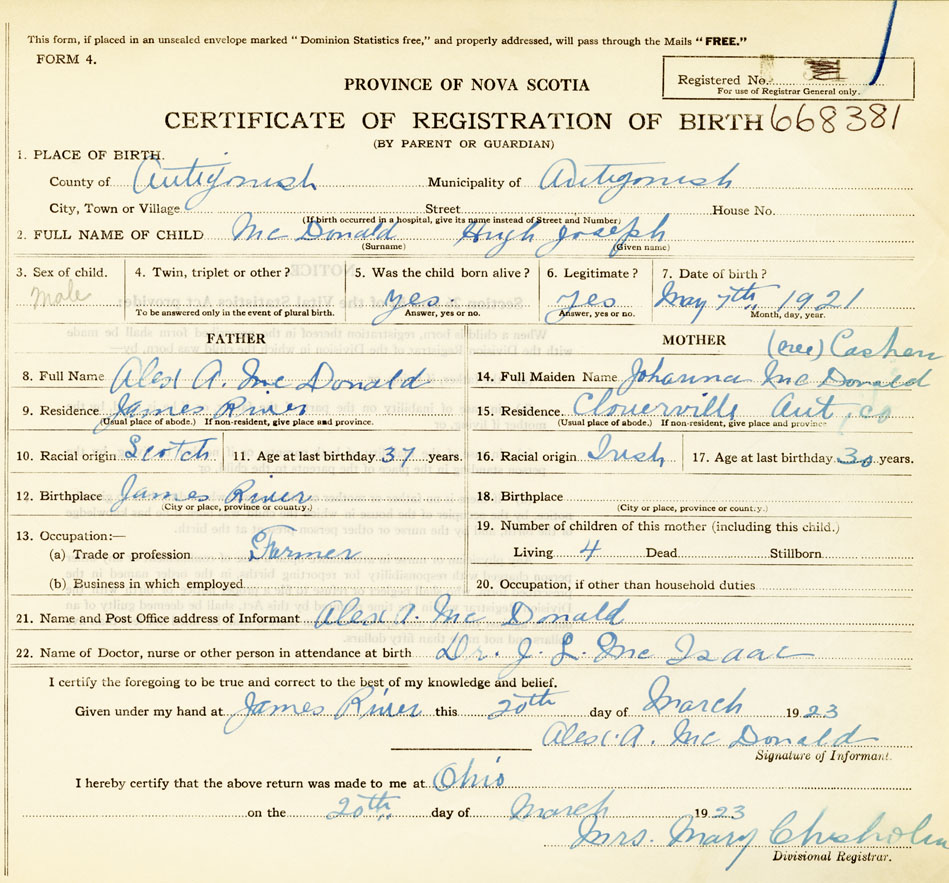 This form, if placed in an unsealed envelope marked “Dominion Statistics free,” and properly addressed, will pass through the Mails “FREE.”
FORM 4.
Registered No.
For use of Registrar General only.
PROVINCE OF NOVA SCOTIA
CERTIFICATE OF REGISTRATION OF BIRTH 668381
(BY PARENT OR GUARDIAN)
1. PLACE OF BIRTH.
County of Antigonish Municipality of Antigonish
City, Town or Village Street House No.
(If birth occurred in a hospital, give its name instead of Street and Number)
2. FULL NAME OF CHILD Mc Donald Hugh Joseph
(Surname) (Given name)
3. Sex of child. 4. Twin, triplet or other? 5. Was the child born alive? 6. Legitimate? 7. Date of birth?
Male yes. yes May 7th 1921
To be answered only in the event of plural birth. Answer, yes or no. Answer, yes or no. Month, day, year.
FATHER MOTHER (nee) Cashen
8. Full Name Alex A. Mc Donald 14. Full Maiden Name Johanna Mc Donald
9. Residence James River 15. Residence Cloverville Ant, co
(Usual place of abode.) If non-resident, give place and province. (Usual place of abode.) If non-resident, give place and province
10. Racial origin Scotch 11. Age at last birthday 37 years. 16. Racial origin Irish 17. Age at last birthday 30 years.
12. Birthplace James River 18. Birthplace
(City or place, province or country.) (City or place, province or country.)
13. Occupation:— 19. Number of children of this mother (including this child.)
(a) Trade or profession Farmer Living 4 Dead Stillborn
(b) Business in which employed 20. Occupation, if other than household duties
21. Name and Post Office address of Informant Alex A. Mc Donald
22. Name of Doctor, nurse or other person in attendance at birth Dr. J. L. Mc Isaac
I certify the foregoing to be true and correct to the best of my knowledge and belief.
Given under my hand at James River this 20th day of March 1923
Alex. A. Mc Donald
Signature of Informant.
I hereby certify that the above return was made to me at Ohio
on the 20th day of March 1923
Mrs. Mary Chisholm
Divisional Registrar.